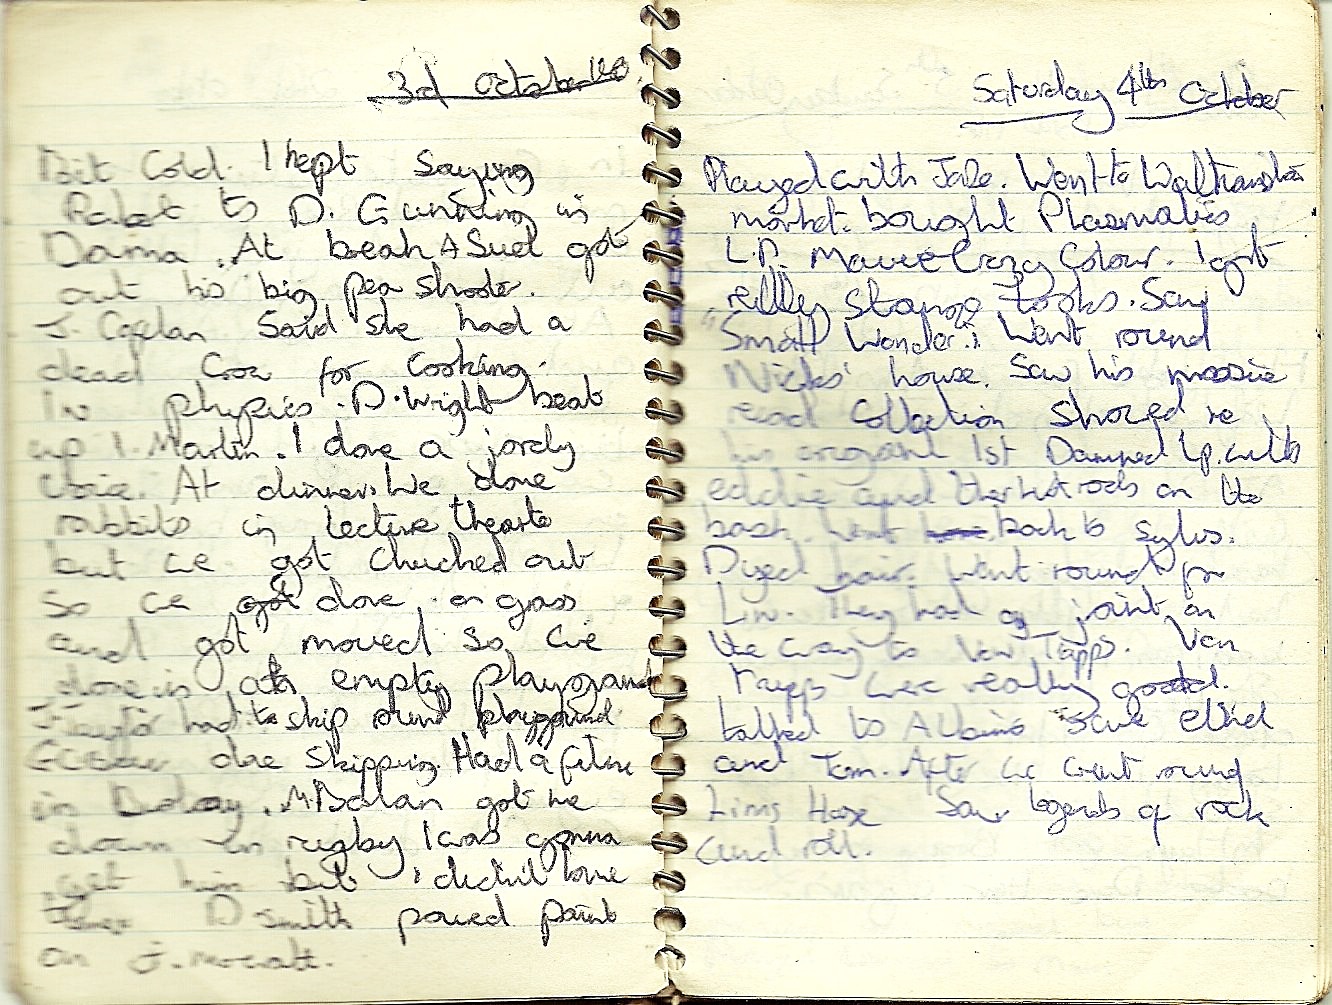 3rd October
Bit Cold. I kept Saying
to D. Gunning in
Drama. At break A Suel got
out his big pea Shooter.
J. Coplan Said She had a
dead Crow for Cooking.
In physics. D. Wright beat
up I. Martin. I done a
Voice. At dinner. We done
rabbits in lecture thearte
but we got Chucked out
So we got done on grass
and got moved So we
done in empty Playground
had to skip round playground
doe Skipping. Had a
in Bolan got me
down in rugby I was gonna
get him but I didn't have
D Smith poured paint
on J. Mowatt.
Saturday 4th October
Played with Jake. Went to Walthamstow
market. bought Plasmatics
L.P. Mauve Crazy Colour. I got
strange looks. Saw
"Small Wonder". Went round
Nicks' house. Saw his massive
Collection Showed me
his 1st Damned Lp. with
eddie and the Hot rods on the
back. Went back to Sylvs.
Dyed hair. Went round for
Lin. They had a joint on
the way to Van Tapps. Van
Tapps were really good.
talked to Albino Saw
and Tom. After we went round
Lins House Saw legends of rock
and roll.